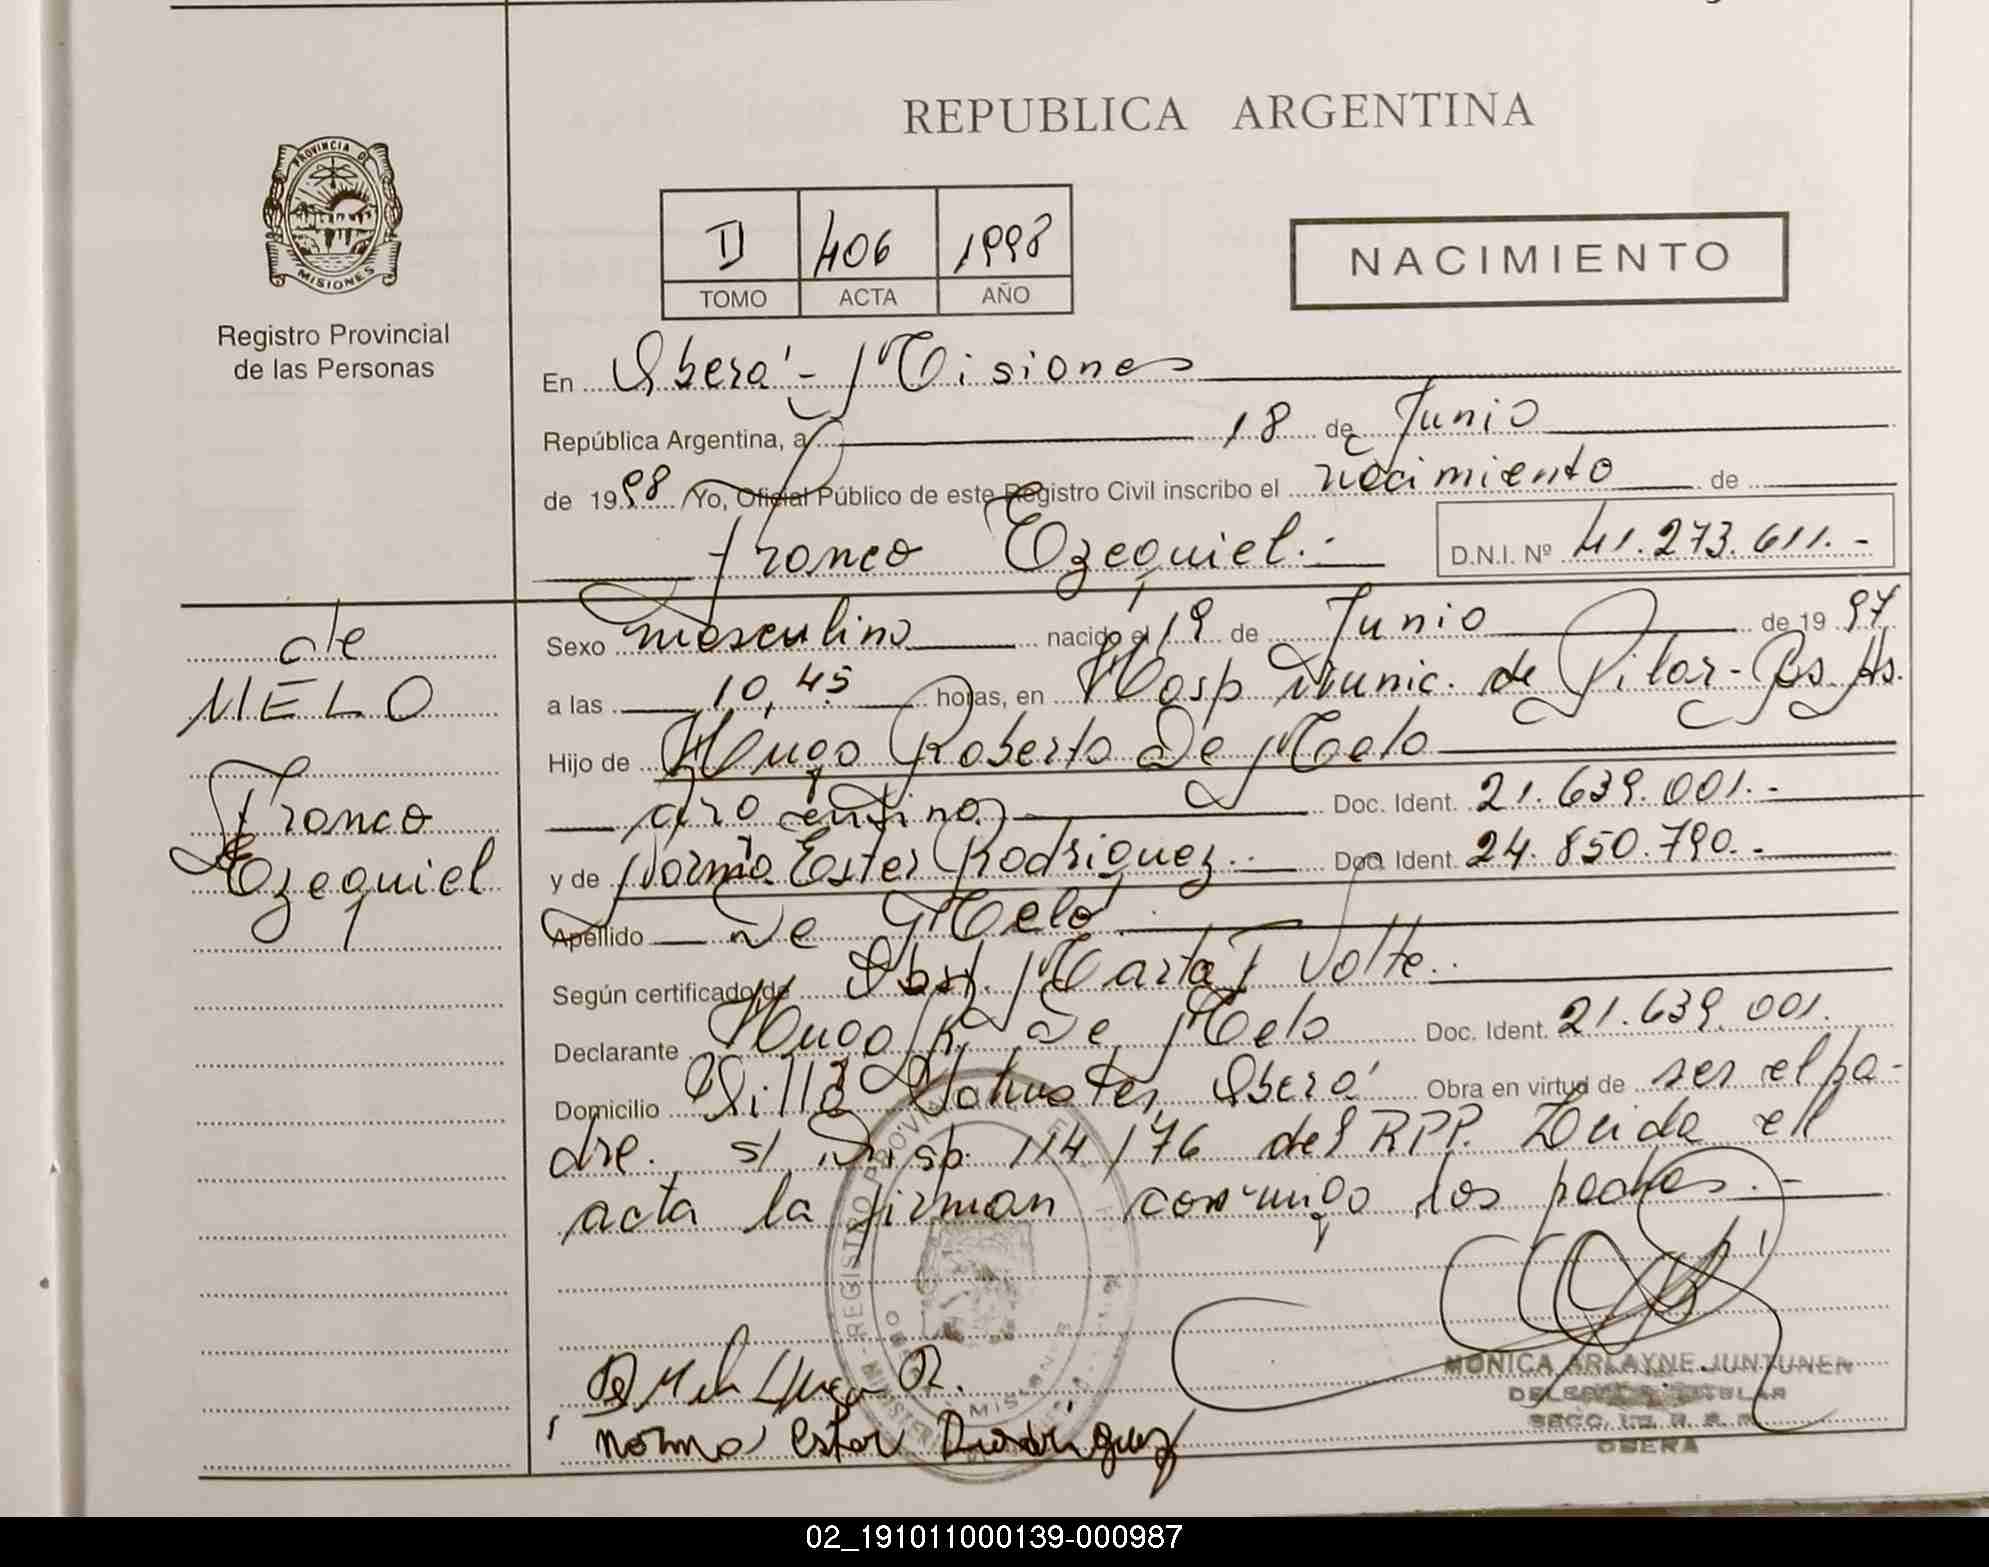 REPUBLICA ARGENTINA
PROVINCIA DE
MISIONES
Registro Provincial
de las Personas
406 1998
TOMO ACTA AÑO
NACIMIENTO
En Oberá - Misiones
República Argentina, a 18 de Junio
de 1998 Yo, Oficial Público de este Registro Civil inscribo el nacimiento de
Franco Ezequiel.- D.N.I. Nº 41.273.611.-
de
MELO
Franco
Ezequiel
Sexo masculino nacido el 19 de Junio de 1997
a las 10,45 horas, en Hosp Munic. de Pilar - Bs. As.
Hijo de Hugo Roberto De Melo
argentino Doc. Ident. 21.639.001.-
y de Norma Ester Rodriguez.- Doc. Ident. 24.850.790.-
Apellido De Melo
Según certificado de Obst. Marta Volte.
Declarante Hugo R. De Melo Doc. Ident. 21.639.001.
Domicilio Villa Oberá Obra en virtud de ser el pa-
dre. s/ Disp. 114/76 del RPP. Leida el
acta la firman conmigo los padres.-
De Melo Hugo R.
Norma Ester Rodriguez
MONICA ARLAYNE JUNTUNEN
OBERA
02_191011000139-000987